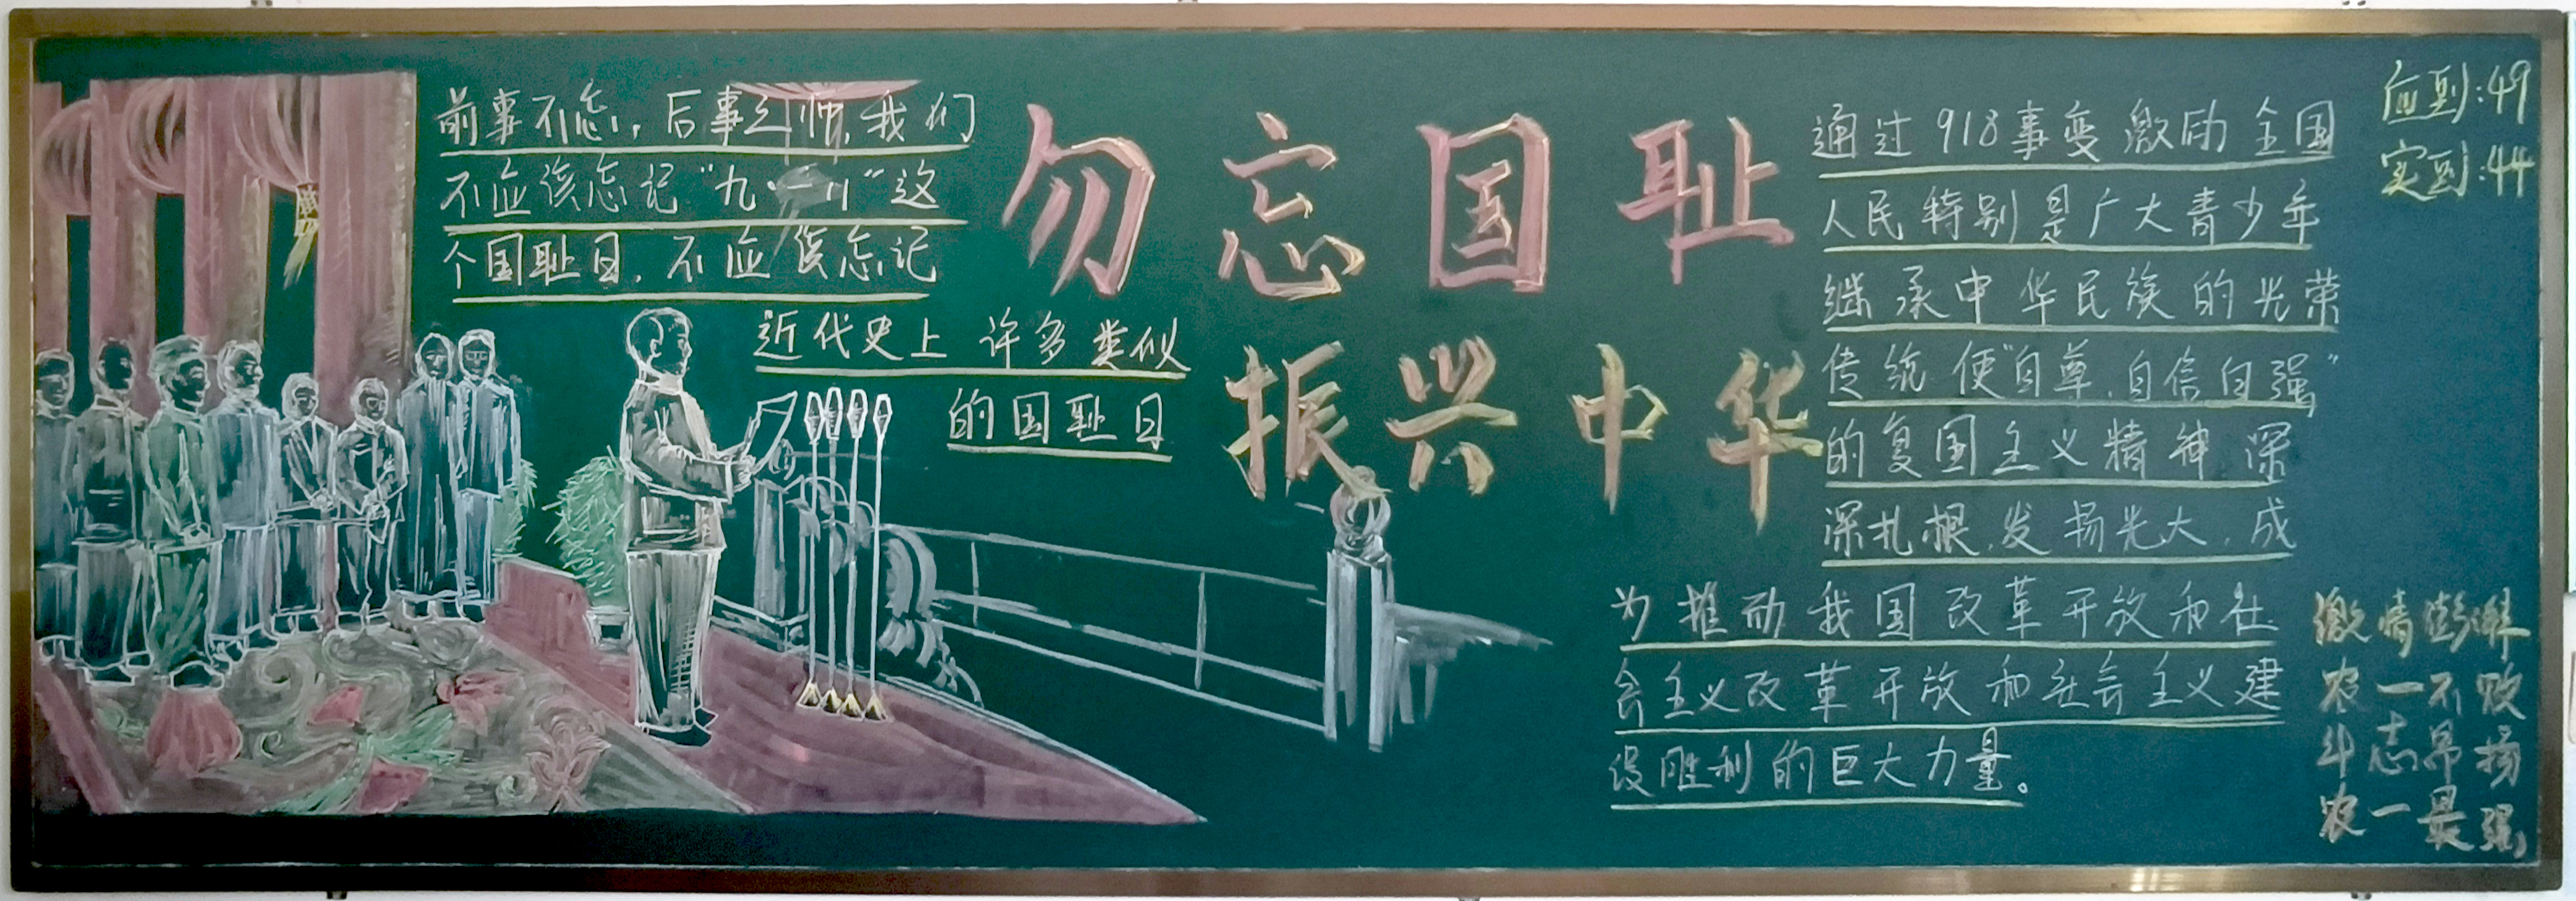 前事不忘,后事之师,我们
不应该忘记“九·一八”这
个国耻日,不应该忘记
近代史上许多类似
的国耻日
勿忘国耻
振兴中华
通过918事变激励全国
人民特别是广大青少年
继承中华民族的光荣
传统使“自尊,自信自强”
的复国主义精神深
深扎根,发扬光大,成
为推动我国改革开放和社
会主义改革开放和社会主义建
设胜利的巨大力量。
应到:49
实到:44
激情澎湃
农一不败
斗志昂扬
农一最强